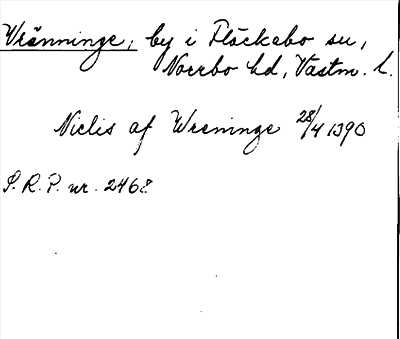 Vränninge, by i Fläckebo sn,
Norrbo hd, Västm. l.
Niclis af Wreninge 28/4 1390
S.R.P. nr. 2468